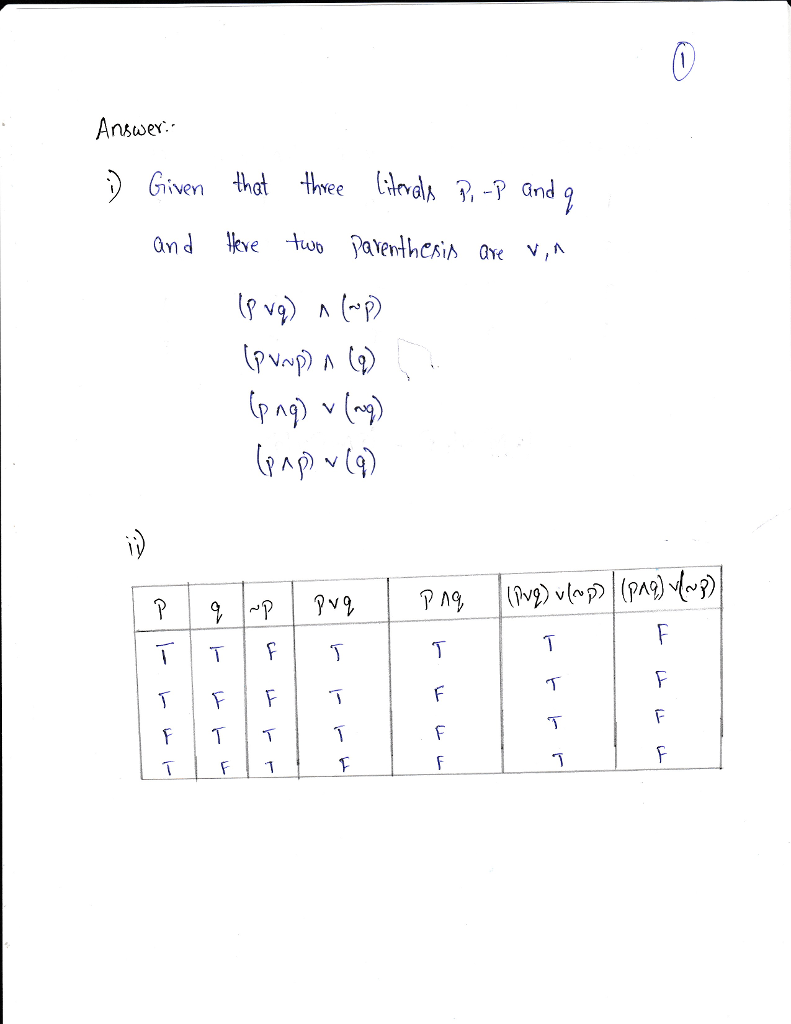 1
Answer:-
i) Given that three literals P, -P and q
and Here two Parenthesis are v, ∧
(p v q) ∧ (~p)
(p v ~p) ∧ (q)
(p ∧ q) v (~q)
(p ∧ p) v (q)
ii)
P q ~P P v q P ∧ q (P v q) v (~p) (P ∧ q) v (~p)
T T F T T T F
T F F T F T F
F T T T F T F
T F T F F T F